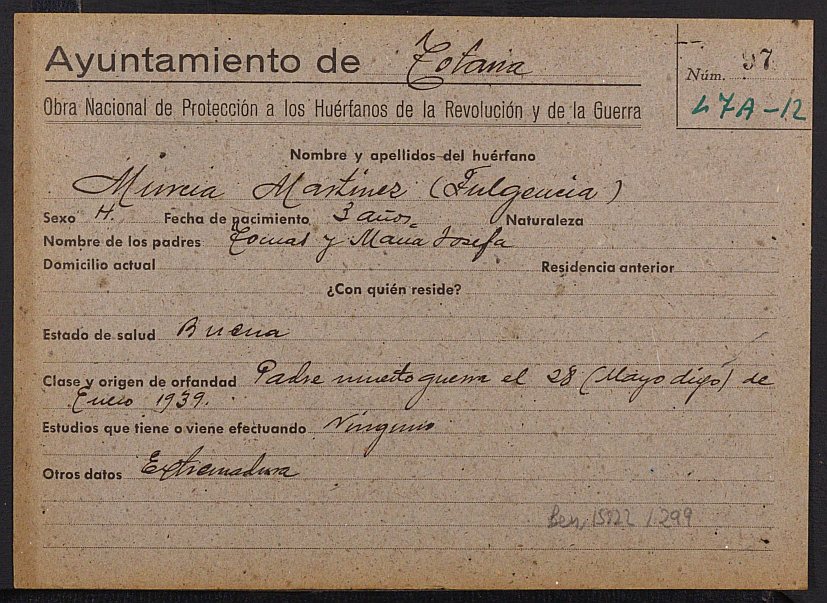 Ayuntamiento de Totana
Núm. 97
47A-12
Obra Nacional de Protección a los Huérfanos de la Revolución y de la Guerra
Nombre y apellidos del huérfano
Murcia Martinez (Fulgencia)
Sexo H. Fecha de nacimiento 3 años. Naturaleza
Nombre de los padres Tomas y Maria Josefa
Domicilio actual Residencia anterior
¿Con quién reside?
Estado de salud Buena
Clase y origen de orfandad Padre muerto guerra el 28 (Mayo digo) de
Enero 1939.
Estudios que tiene o viene efectuando Ninguno
Otros datos Extremadura
Ben, 15122 / 299